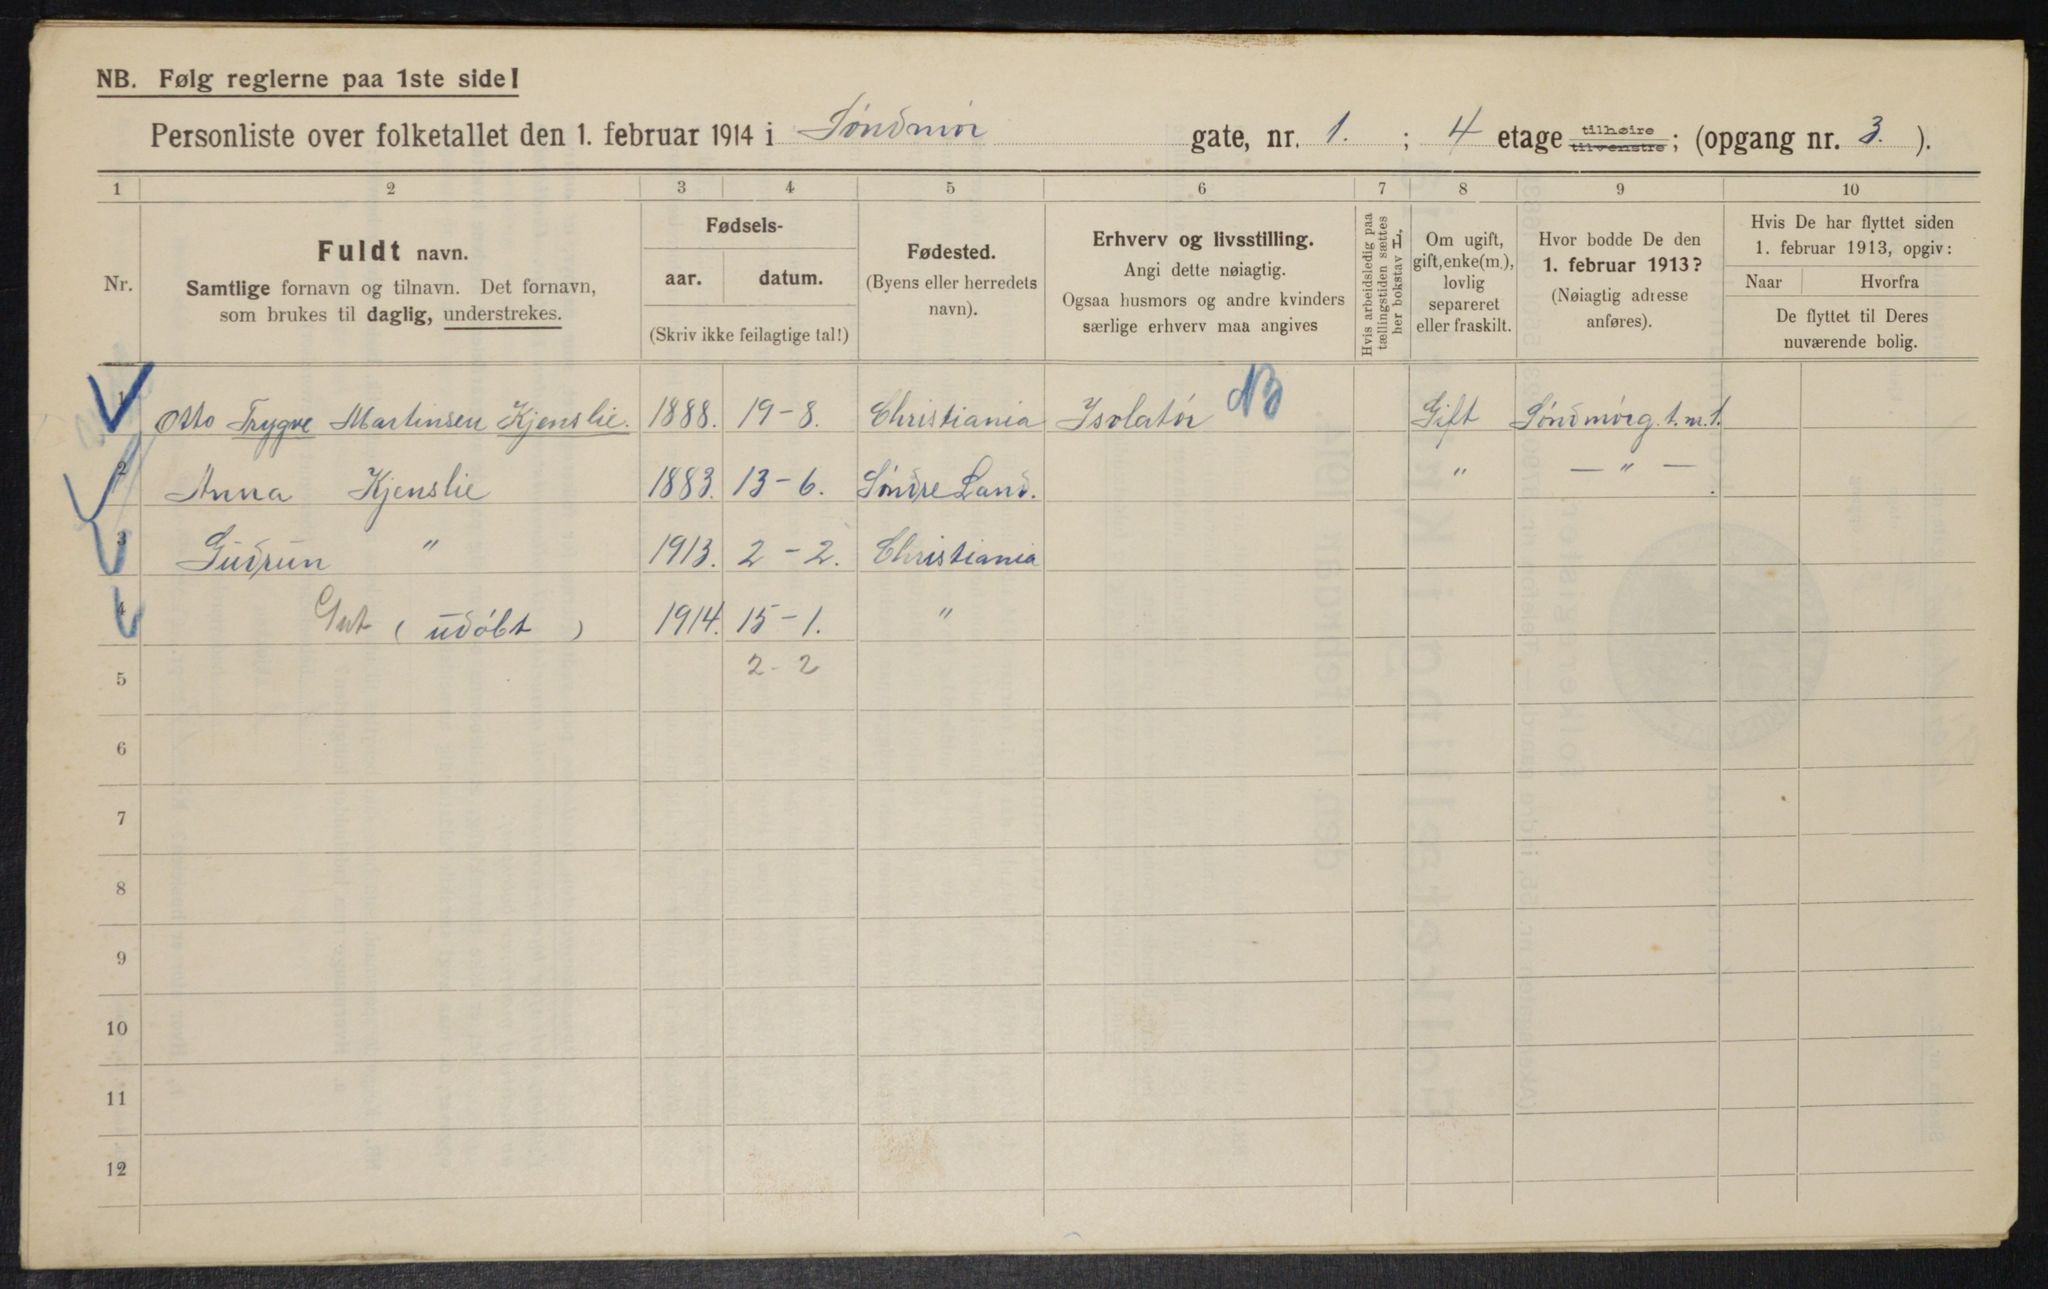 NB. Følg reglerne paa 1ste side!
Personliste over folketallet den 1. februar 1914 i Söndmör gate, nr. 1. ; 4 etage tilhøire tilvenstre; (opgang nr. 3. ).
1 2 3 4 5 6 7 8 9 10
Nr.
Fuldt navn.
Samtlige fornavn og tilnavn. Det fornavn,
som brukes til daglig, understrekes.
Fødsels-
aar. datum.
(Skriv ikke feilagtige tal!)
Fødested.
(Byens eller herredets
navn).
Erhverv og livsstilling.
Angi dette nøiagtig.
Ogsaa husmors og andre kvinders
særlige erhverv maa angives
Hvis arbeidsledig paa
tællingstiden sættes
her bokstav L.
Om ugift,
gift, enke(m.),
lovlig
separeret
eller fraskilt.
Hvor bodde De den
1. februar 1913?
(Nøiagtig adresse
anføres).
Hvis De har flyttet siden
1. februar 1913, opgiv:
Naar Hvorfra
De flyttet til Deres
nuværende bolig.
1 Otto Trygve Martinsen Kjenslie. 1888. 19-8. Christiania Isolatör NB Gift Söndmörg. 1. m. 1.
2 Anna Kjenslie 1883. 13-6. Söndre Land. " — " —
3 Gudrun " 1913. 2-2. Christiania
4 Gut ( udöbt ) 1914. 15-1. "
5 2-2
6
7
8
9
10
11
12